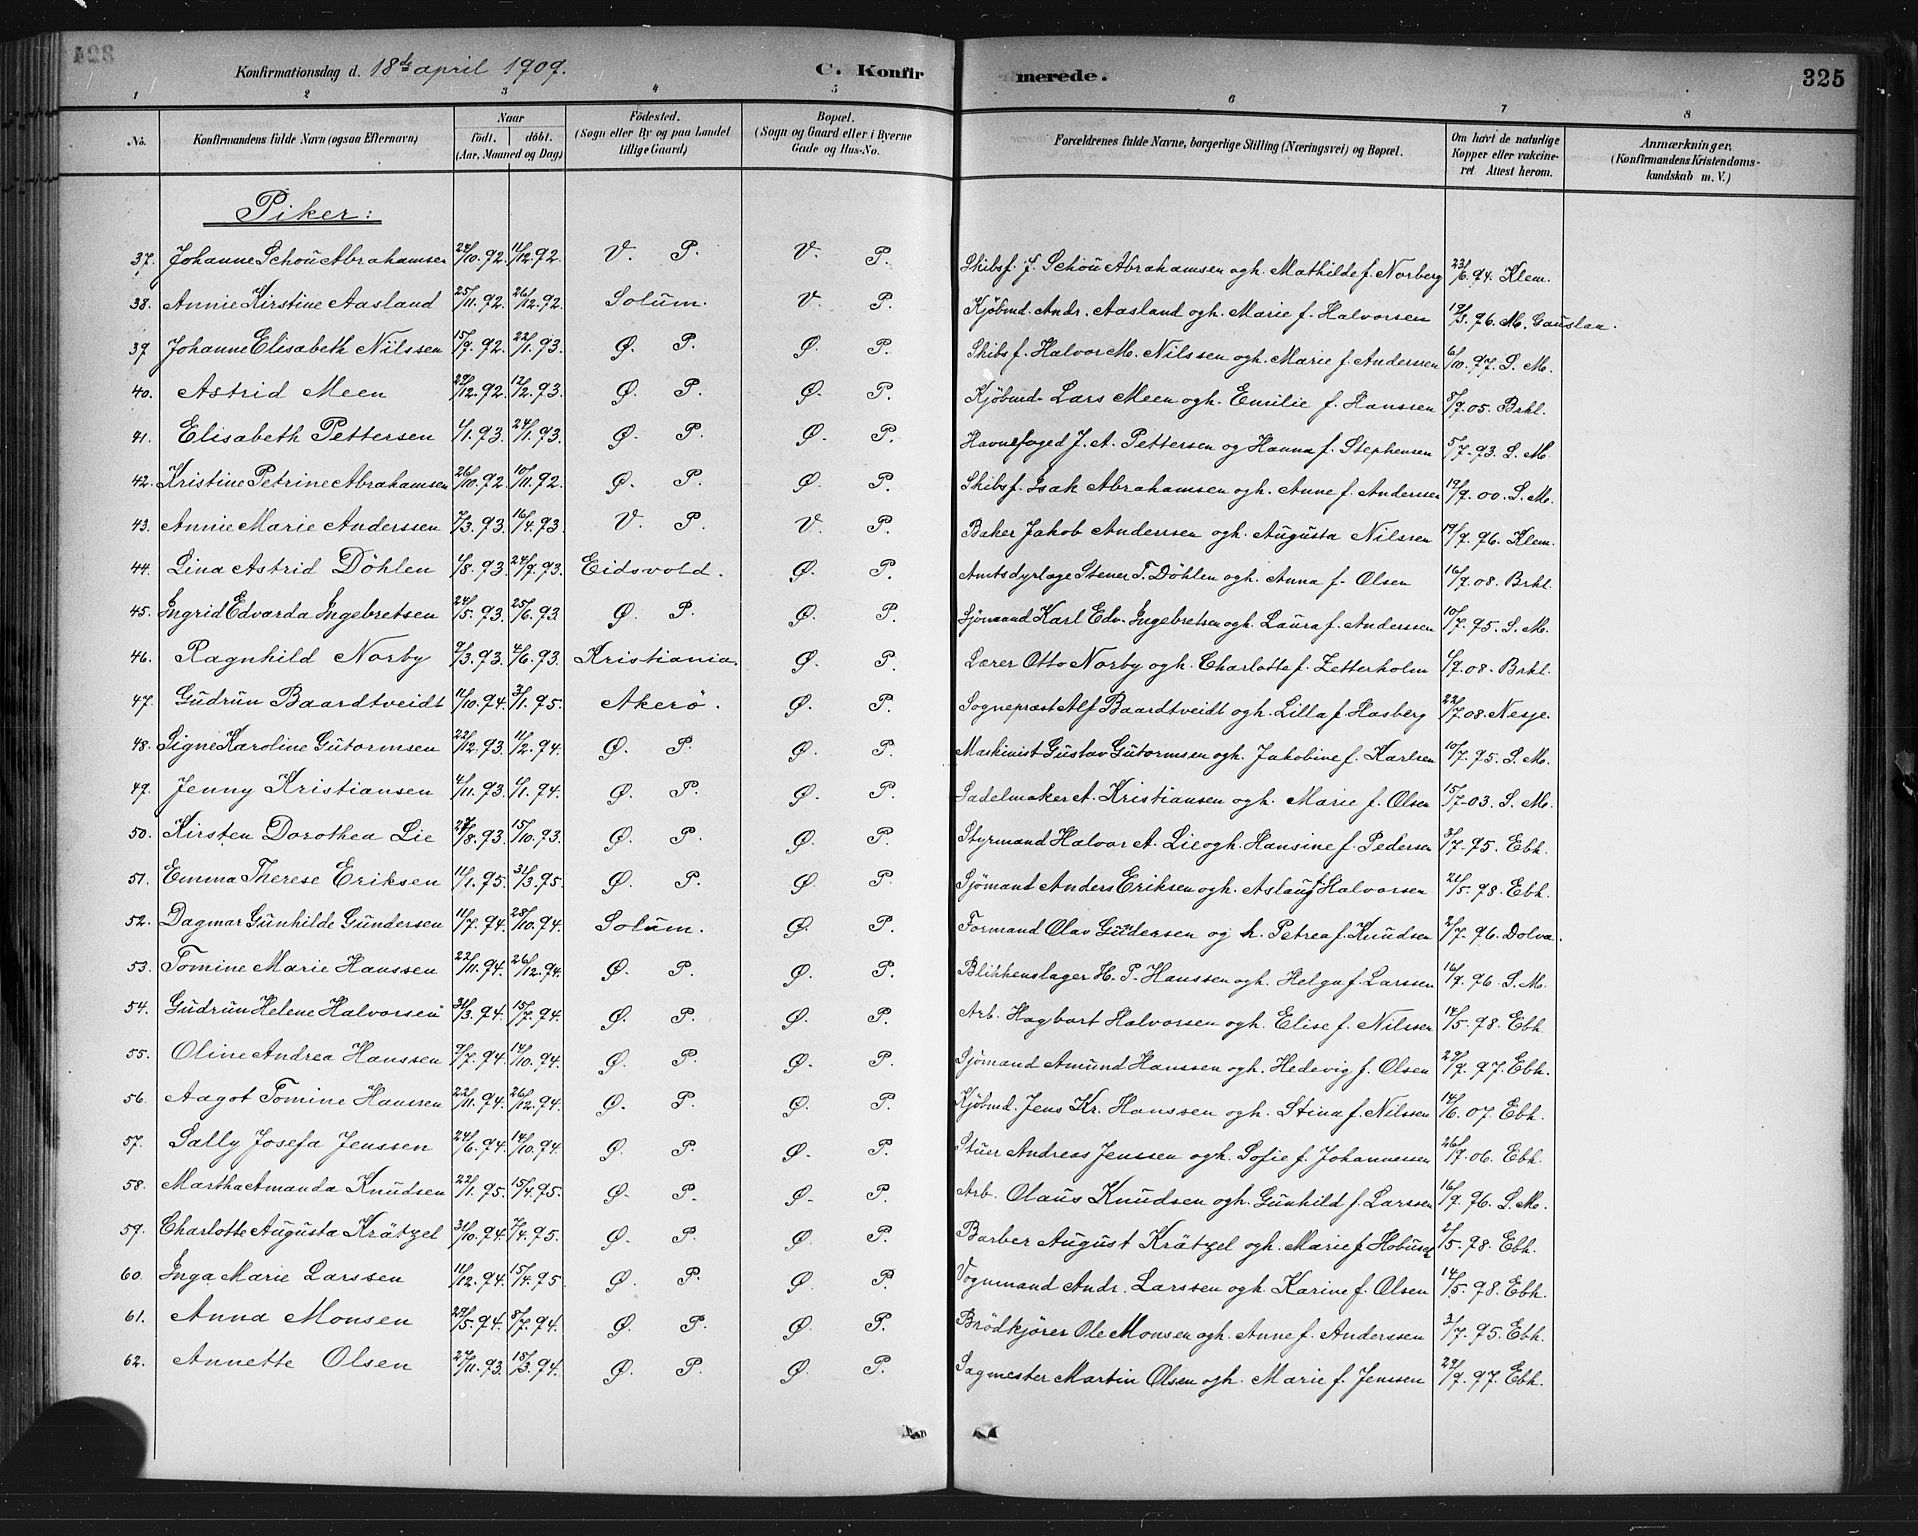 Konfirmationsdag d. 18de april 1909. C. Konfirmerede. 325
1 2 3 4 5 6 7 8
No. Konfirmandens fulde Navn (ogsaa Efternavn) Naar født. døbt. (Aar, Maaned og Dag) Fødested. (Sogn eller By og paa Landet tillige Gaard) Bopæl. (Sogn og Gaard eller i Byerne Gade og Hus-No. Forældrenes fulde Navne, borgerlige Stilling (Næringsvei) og Bopæl. Om havt de naturlige Kopper eller vakcineret Attest herom. Anmærkninger, (Konfirmandens Kristendomskundskab m. V.)
Piker:
37. Johanne Schou Abrahamsen 24/10.92. 11/12.92. V. P. V. P. Skibsf. J. Schou Abrahamsen ogh. Mathilde f. Norberg 23/6.94. Klem.
38. Annie Kirstine Aasland 25/11.92. 26/12.92. Solum. V. P. Kjøbmd. Andr. Aasland ogh. Marie f. Halvorsen 19/3.96. M. Gauslaa.
39 Johanne Elisabeth Nilssen 15/9.92. 22/1.93. Ø. P. Ø. P. Skibsf. Halvor M. Nilssen ogh. Marie f. Andersen 6/10.97. S. M.
40. Astrid Meen 29/12.92. 12/2.93. Ø. P. Ø. P. Kjøbmd. Lars Meen ogh. Emilie f. Hanssen 8/9.05. Brkl.
41. Elisabeth Pettersen 1/1.93. 24/1.93. Ø. P. Ø. P. Havnefoged J. A. Pettersen og Hanna f. Stephensen 5/7.93. S. M.
42. Kristine Petrine Abrahamsen 26/10.92. 10/11.92. Ø. P. Ø. P. Skibsf. Isak Abrahamsen ogh. Anne f. Anderssen 19/9.00. S. M.
43. Annie Marie Anderssen 7/3.93. 16/4.93. V. P. V. P. Baker Jakob Anderssen ogh. Augusta Nilssen 17/9.96. Klem.
44. Lina Astrid Döhlen 1/8.93. 24/9.93. Eidsvold. Ø. P. Amtsdyrlæge Stener T. Döhlen ogh. Anna f. Olsen 16/9.08. Brkl.
45. Ingrid Edvarda Ingebretsen 24/5.93. 25/6.93. Ø. P. Ø. P. Sjømand Karl Edv. Ingebretsen ogh. Laura f. Anderssen 10/7.95. S. M.
46. Ragnhild Norby 9/3.93. 4/6.93. Kristiania. Ø. P. Lærer Otto Norby ogh. Charlotte f. Zetterholm 1/9.08. Brkl.
47. Gudrun Baardtveidt 11/10.94. 3/1.95. Akerö. Ø. P. Sogneprest Alf Baardtveidt ogh. Lilla f. Hasberg 22/7.08. Nesje.
48. Signe Karoline Gutormsen 22/12.93. 11/2.94. Ø. P. Ø. P. Maskinist Gustav Gutormsen ogh. Jakobine f. Karlsen 10/7.95. S. M.
49. Jenny Kristiansen 4/11.93. 1/1.94. Ø. P. Ø. P. Sadelmaker A. Kristiansen ogh. Marie f. Olsen 15/7.03. S. M.
50. Kirsten Dorothea Lie 27/8.93. 15/10.93. Ø. P. Ø. P. Styrmand Halvor A. Lie ogh. Hansine f. Pedersen 3/7.95. Ebh.
51. Emma Therese Eriksen 11/1.95. 31/3.95. Ø. P. Ø. P. Sjømand Anders Eriksen ogh. Aslaug f. Halvorsen 21/5.98. Ebh.
52. Dagmar Gunhilde Gundersen 11/7.94. 28/10.94. Solum. Ø. P. Formand Olav Gundersen og h. Petrea f. Knudsen 2/7.96. Dolva.
53. Tomine Marie Hanssen 22/11.94. 26/12.94. Ø. P. Ø. P. Blikkenslager H. P. Hanssen ogh. Helga f. Larssen 16/9.96. S. M.
54. Gudrun Helene Halvorsen 31/3.94. 15/7.94. Ø. P. Ø. P. Arb. Hagbart Halvorsen ogh. Elise f. Nilssen 14/5.98. Ebh.
55. Oline Andrea Hanssen 9/7.94. 14/10.94. Ø. P. Ø. P. Sjømand Amund Hanssen ogh. Hedevig f. Olsen 29/9.97. Ebh.
56. Aagot Tomine Hanssen 22/11.94. 26/12.94. Ø. P. Ø. P. Kjøbmd. Jens Kr. Hanssen ogh. Stina f. Nilssen 14/6.07. Ebh.
57. Sally Josefa Jenssen 24/6.94. 14/10.94. Ø. P. Ø. P. Stuer Andreas Jenssen ogh. Sofie f. Johannessen 26/9.06. Ebh.
58. Martha Amanda Knudsen 22/1.95. 15/4.95. Ø. P. Ø. P. Arb. Olaus Knudsen ogh. Gunhild f. Larssen 16/9.96. S. M.
59. Charlotte Augusta Krätzel 31/10.94. 7/4.95. Ø. P. Ø. P. Barber August Krätzel ogh. Marie f. 2/5.98. Ebh.
60. Inga Marie Larssen 11/12.94. 15/4.95. Ø. P. Ø. P. Vognmand Andr. Larssen ogh. Karine f. Olsen 14/5.98. Ebh.
61. Anna Monsen 29/5.94. 8/7.94. Ø. P. Ø. P. Brödkjører Ole Monsen ogh. Anne f. Anderssen 3/7.95. Ebh.
62. Annette Olsen 27/11.93. 18/3.94. Ø. P. Ø. P. Sagmester Martin Olsen ogh. Marie f. Jenssen 29/9.97. Ebh.